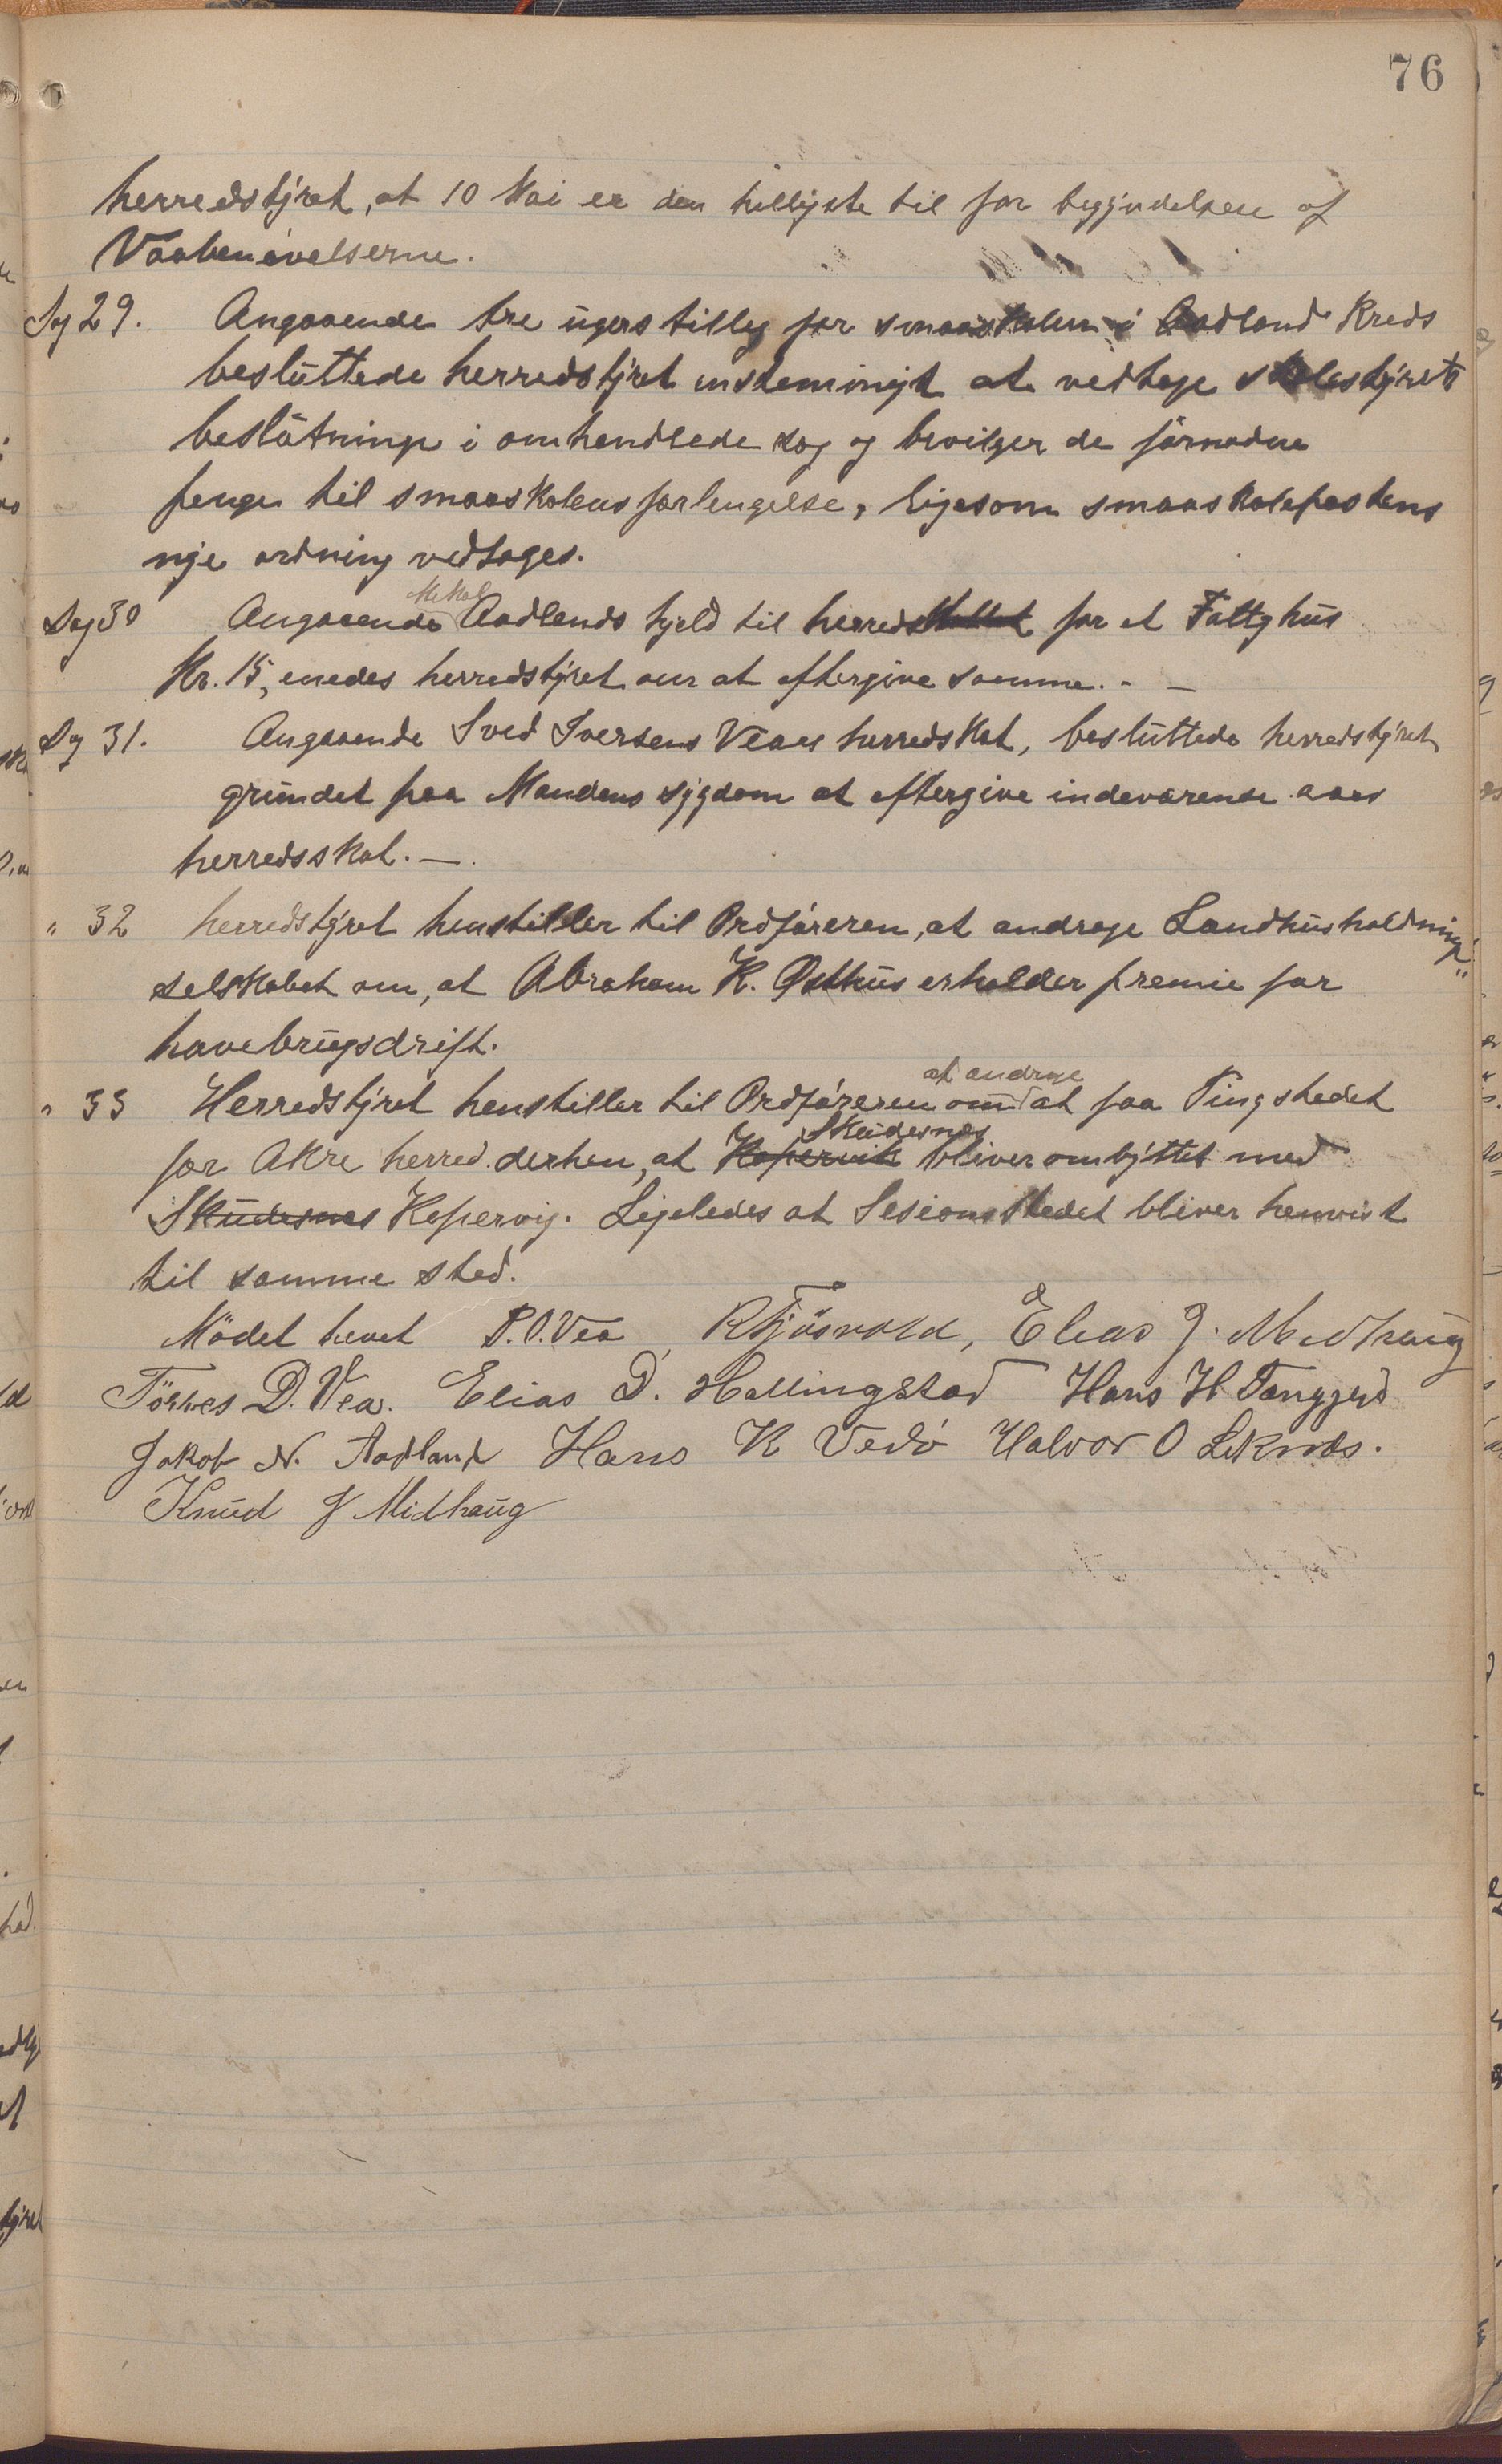 76
herredstyret, at 10 Mai er den billigste til for begyndelsen af
Vaabenövelserne.
Sag 29. Angaaende tre ugers tilleg for smaaskolen i Aadland Kreds
besluttede herredstyret enstemmigt at vedtage skolestyrets
beslutning i omhendlede sag og bevilger de förnødne
penge til smaaskolens forlengelse, ligesom smaaskolepostens
nye ordning vedtages.
Sag 30 Angaaende Mikal Aadlands hjeld til herredskallet for et Fattghus
Kr. 15, enedes herredstyret om at eftergive samme. - -
Sag 31. Angaaende Sved Iversens Veaes herredsskat, besluttede herredstyret
grundet paa Mandens sygdom at eftergive indeværende aars
herredsskat. -
" 32 herredstyret henstiller til Ordföreren, at andrage Landhusholdnings"
selskabet om, at Abraham K. Østhus erholder premie for
havebrugsdrift.
" 33 Herredstyret henstiller til Ordföreren om at andrage at faa Tingstedet
for Akre herred derhen, at Kopervik Skudesnes bliver ombyttet med
Skudesnes Kopervig. Ligeledes at Sesionsstedet bliver henvist
til samme sted.
Mödet hevet P. O. Vea, R Fjösvold, Elias J. Midthaug
Törres D. Vea. Elias D. Hallingstad Hans H. Tangjerd
Jakob N. Aadland Hans K Vedö Halvor O Leknes.
Knud J Midhaug